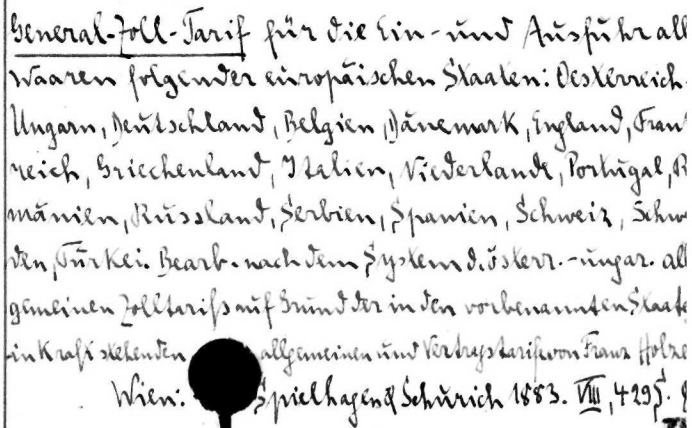 General-Zoll-Tarif für die Ein- und Ausfuhr all
Waaren folgender europäischen Staaten: Oesterreich
Ungarn, Deutschland, Belgien, Dänemark, England, Fran
reich, Griechenland, Italien, Niederlande, Portugal, R
mänien, Russland, Serbien, Spanien, Schweiz, Schw
den, Türkei. Bearb. nach dem System d. österr.-ungar. all
gemeinen Zolltarifs auf Grund der in den vorbenannten Staate
in Kraft stehenden allgemeinen und Vertragstarife von Franz Holze
Wien: Spielhagen & Schurich 1883. VIII, 429 S.